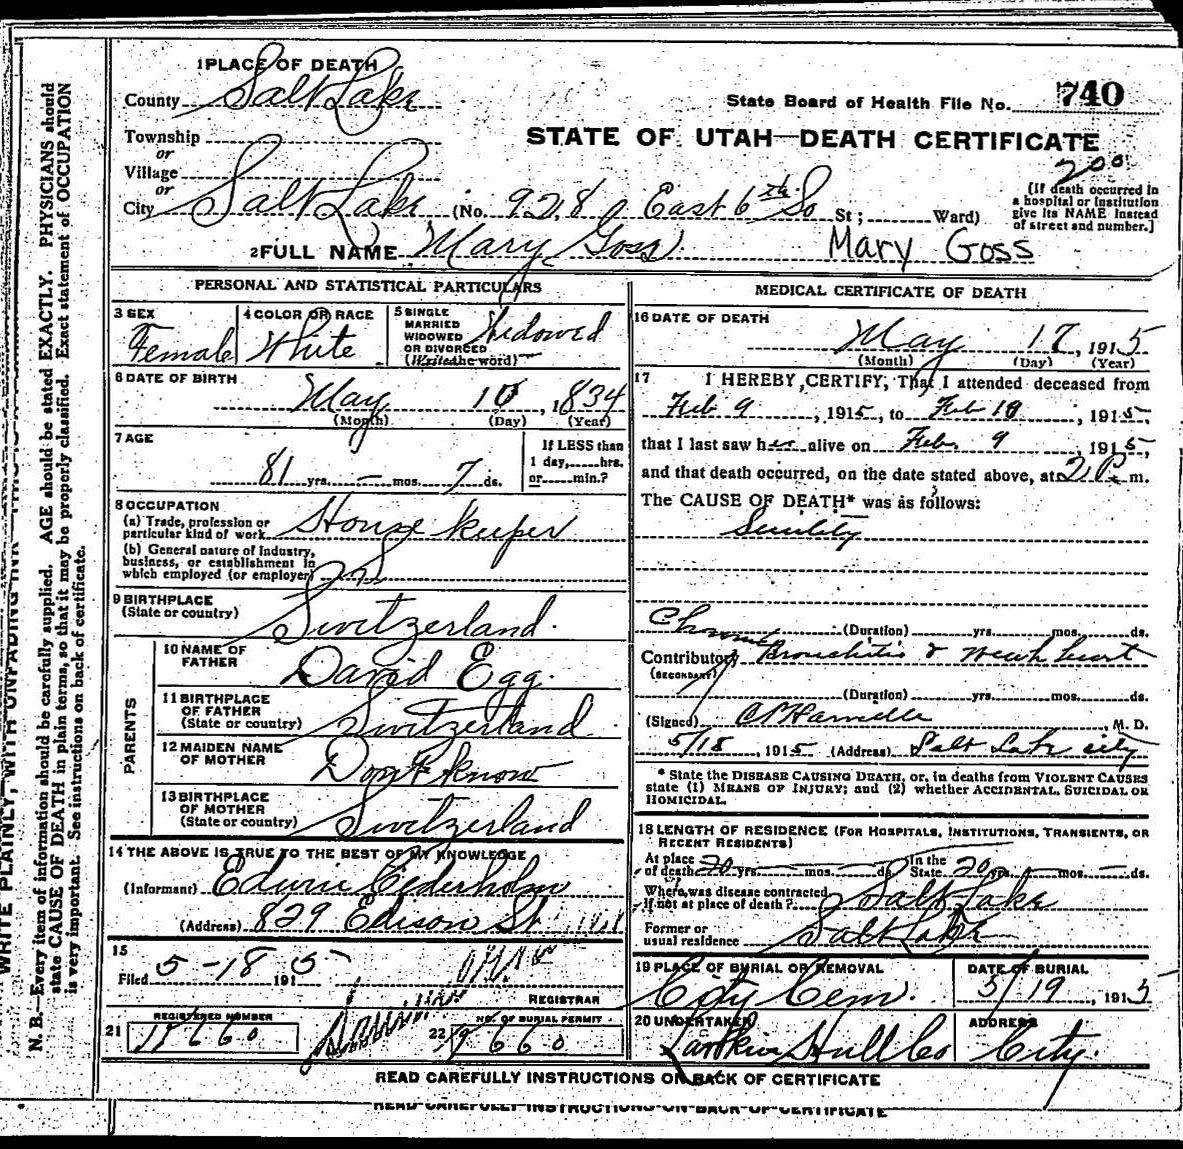 1 PLACE OF DEATH
County Salt Lake
State Board of Health File No. 740
Township
or
Village
or
City Salt Lake (No. 928 East 6th So St; Ward)
STATE OF UTAH—DEATH CERTIFICATE
200
[If death occurred in a hospital or institution give its NAME instead of street and number.]
2 FULL NAME Mary Goss Mary Goss
PERSONAL AND STATISTICAL PARTICULARS
3 SEX
Female
4 COLOR OR RACE
White
5 SINGLE MARRIED WIDOWED OR DIVORCED (Write the word)
Widowed
6 DATE OF BIRTH
May 10, 1834
(Month) (Day) (Year)
7 AGE
81 yrs. — mos. 7 ds.
If LESS than 1 day, hrs. or min.?
8 OCCUPATION
(a) Trade, profession or particular kind of work House keeper
(b) General nature of Industry, business, or establishment in which employed (or employer)
9 BIRTHPLACE
(State or country) Switzerland
PARENTS
10 NAME OF FATHER David Egg.
11 BIRTHPLACE OF FATHER (State or country) Switzerland
12 MAIDEN NAME OF MOTHER Dont know
13 BIRTHPLACE OF MOTHER (State or country) Switzerland
14 THE ABOVE IS TRUE TO THE BEST OF MY KNOWLEDGE
(Informant) Edwin Cederholm
(Address) 829 Edison St
15
Filed 5-18 1915
REGISTRAR
21 REGISTERED NUMBER
19660
22 NO. OF BURIAL PERMIT
19660
MEDICAL CERTIFICATE OF DEATH
16 DATE OF DEATH
May 17, 1915
(Month) (Day) (Year)
17 I HEREBY CERTIFY, That I attended deceased from
Feb 9, 1915, to Feb 19, 1915,
that I last saw her alive on Feb. 9 1915,
and that death occurred, on the date stated above, at 2 P. m.
The CAUSE OF DEATH* was as follows:
Senility
(Duration) yrs. mos. ds.
Chronic
Contributory Bronchitis & weak heart
(SECONDARY)
(Duration) yrs. mos. ds.
(Signed) M. D.
5/18, 1915 (Address) Salt Lake City
* State the DISEASE CAUSING DEATH, or, in deaths from VIOLENT CAUSES
state (1) MEANS OF INJURY; and (2) whether ACCIDENTAL, SUICIDAL OR
HOMICIDAL.
18 LENGTH OF RESIDENCE (FOR HOSPITALS, INSTITUTIONS, TRANSIENTS, OR
RECENT RESIDENTS)
At place of death 20 yrs. — mos. — ds. In the State 20 yrs. — mos. — ds.
Where was disease contracted, if not at place of death? Salt Lake
Former or usual residence Salt Lake
19 PLACE OF BURIAL OR REMOVAL
City Cem.
DATE OF BURIAL
5/19, 1915
20 UNDERTAKER
Larkin Hull Co
ADDRESS
City.
READ CAREFULLY INSTRUCTIONS ON BACK OF CERTIFICATE
READ CAREFULLY INSTRUCTIONS ON BACK OF CERTIFICATE
WRITE PLAINLY, WITH UNFADING INK
N. B.—Every item of information should be carefully supplied. AGE should be stated EXACTLY. PHYSICIANS should
state CAUSE OF DEATH in plain terms, so that it may be properly classified. Exact statement of OCCUPATION
is very important. See instructions on back of certificate.